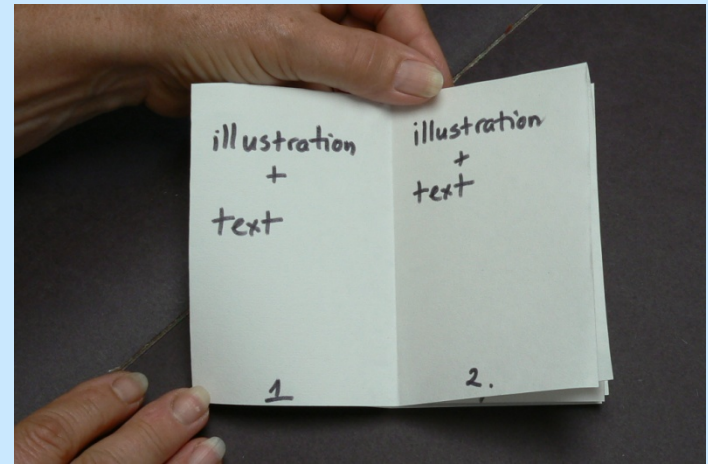 illustration
+
text
1
illustration
+
text
2.